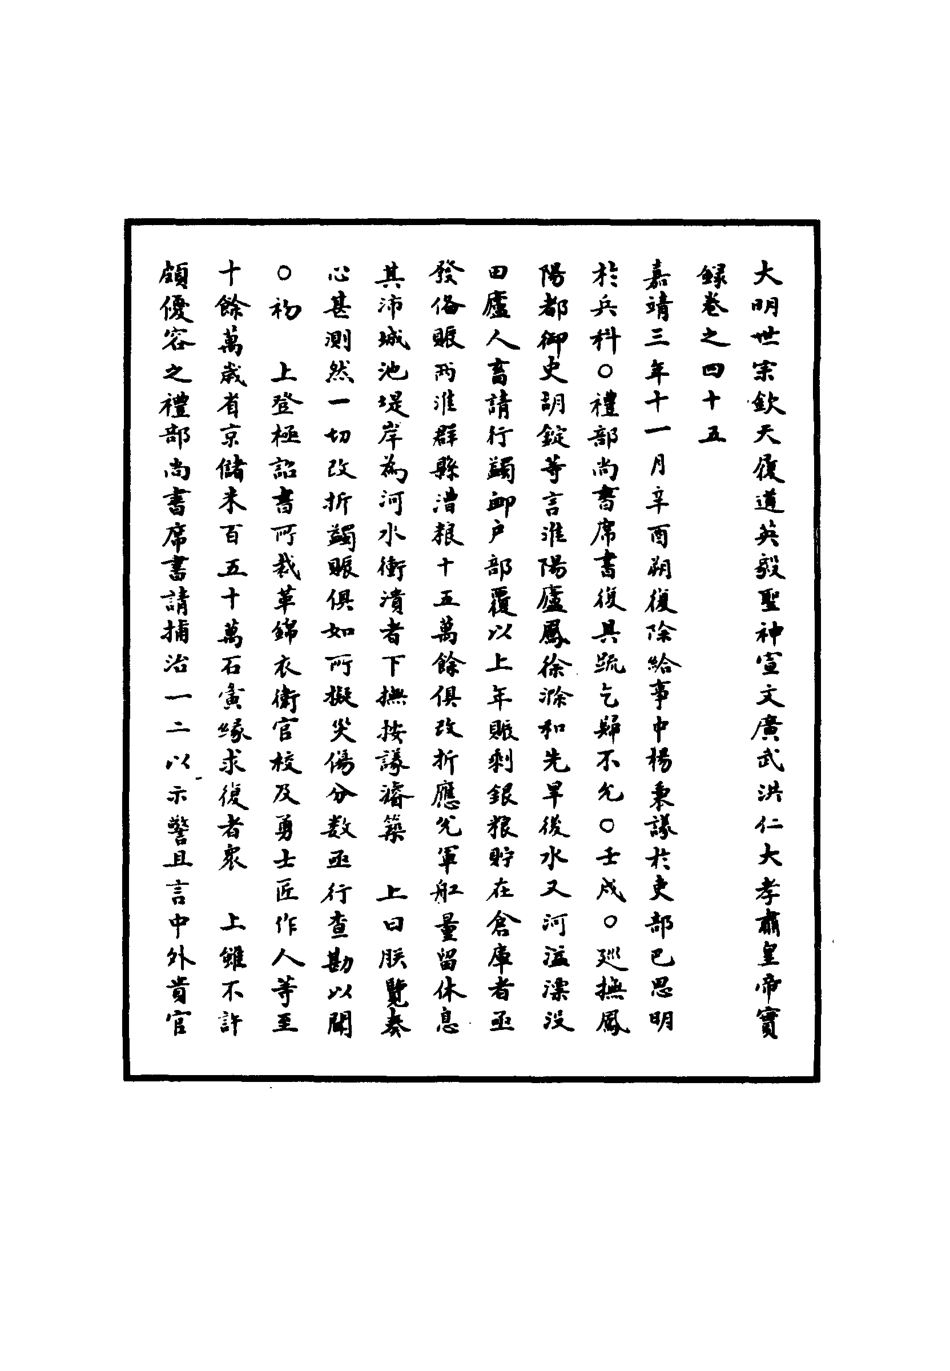 大明世宗欽天履道英毅聖神宣文廣武洪仁大孝肅皇帝實
錄卷之四十五
嘉靖三年十一月辛酉朔復除給事中楊秉議於吏部已思明
於兵科○禮部尚書席書復具疏乞歸不允○壬戌○巡撫鳳
陽都御史胡錠等言淮陽廬鳳徐滁和先旱後水又河溢漂沒
田廬人畜請行蠲卹户部覆以上年賑剩銀粮貯在倉庫者亟
發俻賑兩淮群縣漕粮十五萬餘俱改折應兊軍船量留休息
其沛城池堤岸為河水衝潰者下撫按議濬築　上曰朕覽奏
心甚測然一切改折蠲賑俱如所擬災傷分数亟行查勘以聞
○初　上登極詔書所裁革錦衣衛官校及勇士匠作人等至
十餘萬歲省京儲米百五十萬石夤緣求復者衆　上雖不許
頗優容之禮部尚書席書請捕治一二以示警且言中外貴官